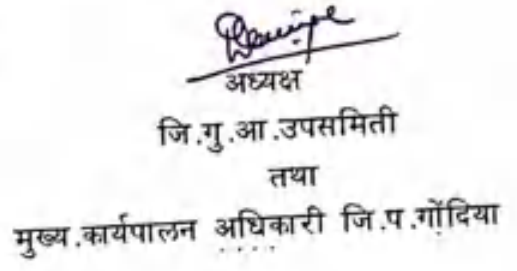 अध्यक्ष
जि.गु.आ.उपसमिती
तथा
मुख्य.कार्यपालन अधिकारी जि.प.गोंदिया